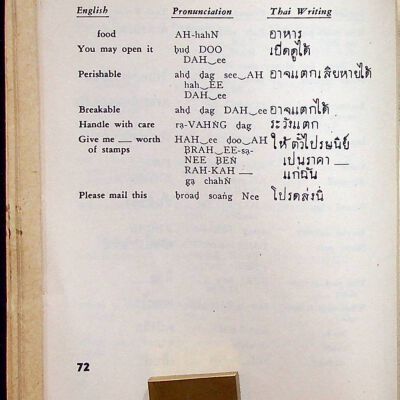 English Pronunciation Thai Writing
food AH-hahN อาหาร
You may open it ḅuḍ DOO เปิดดูได้
DAH‿ee
Perishable ahḍ ḍag see‿AH อาจแตกเสียหายได้
hah‿EE
DAH‿ee
Breakable ahḍ ḍag DAH‿ee อาจแตกได้
Handle with care ṛa-VAHŃG ḍag ระวังแตก
Give me __ worth HAH‿ee ḍoo‿AH ให้ตั๋วไปรษณีย์
of stamps ḄRAH‿EE-sạ- เป็นราคา __
NEE ḄEŃ แก่ฉัน
RAH-KAH __
gạ chahŃ
Please mail this ḅroaḍ soańg Nee โปรดส่งนี่
72